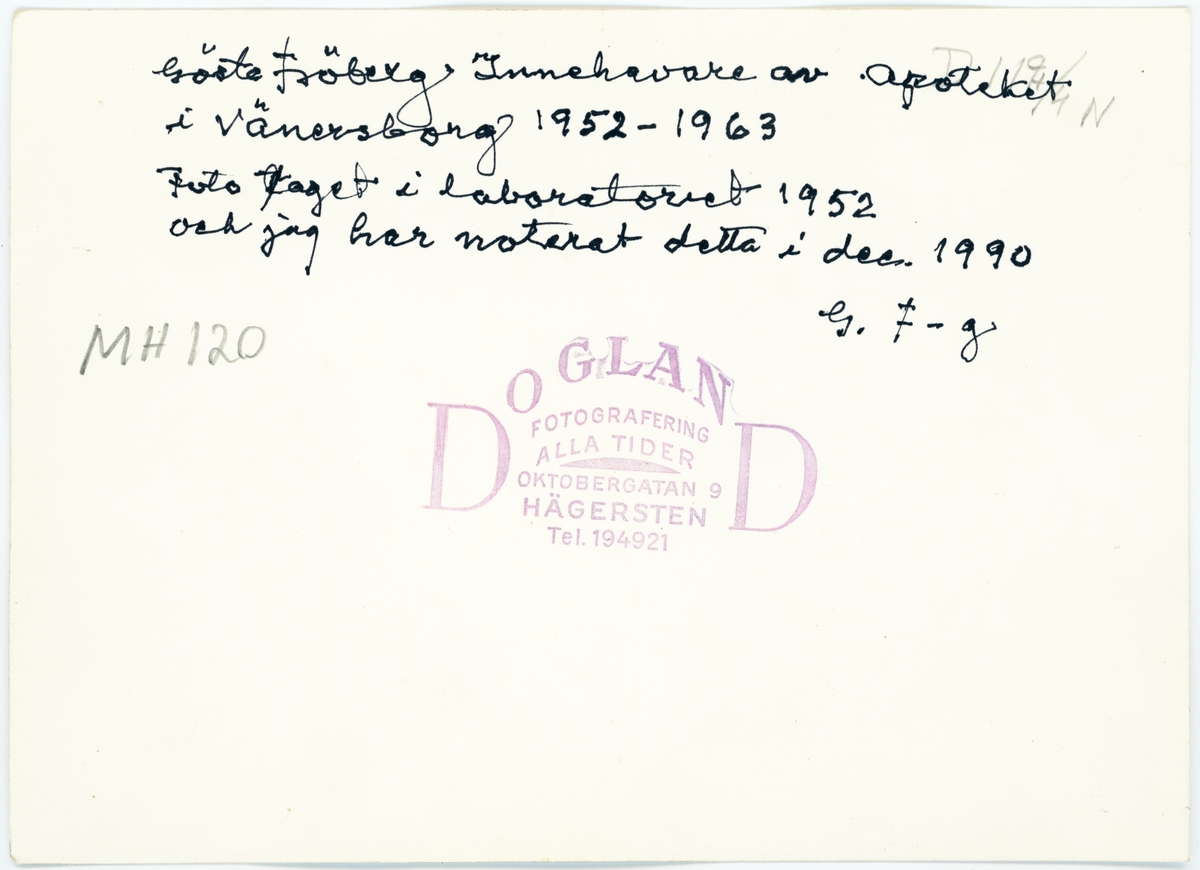 Gösta Fröberg, Innehavare av apoteket
i Vänersborg 1952-1963
Foto taget i laboratoriet 1952
och jag har noterat detta i dec. 1990
G. F-g
MH 120
DOGLAND
FOTOGRAFERING
ALLA TIDER
OKTOBERGATAN 9
HÄGERSTEN
Tel. 194921